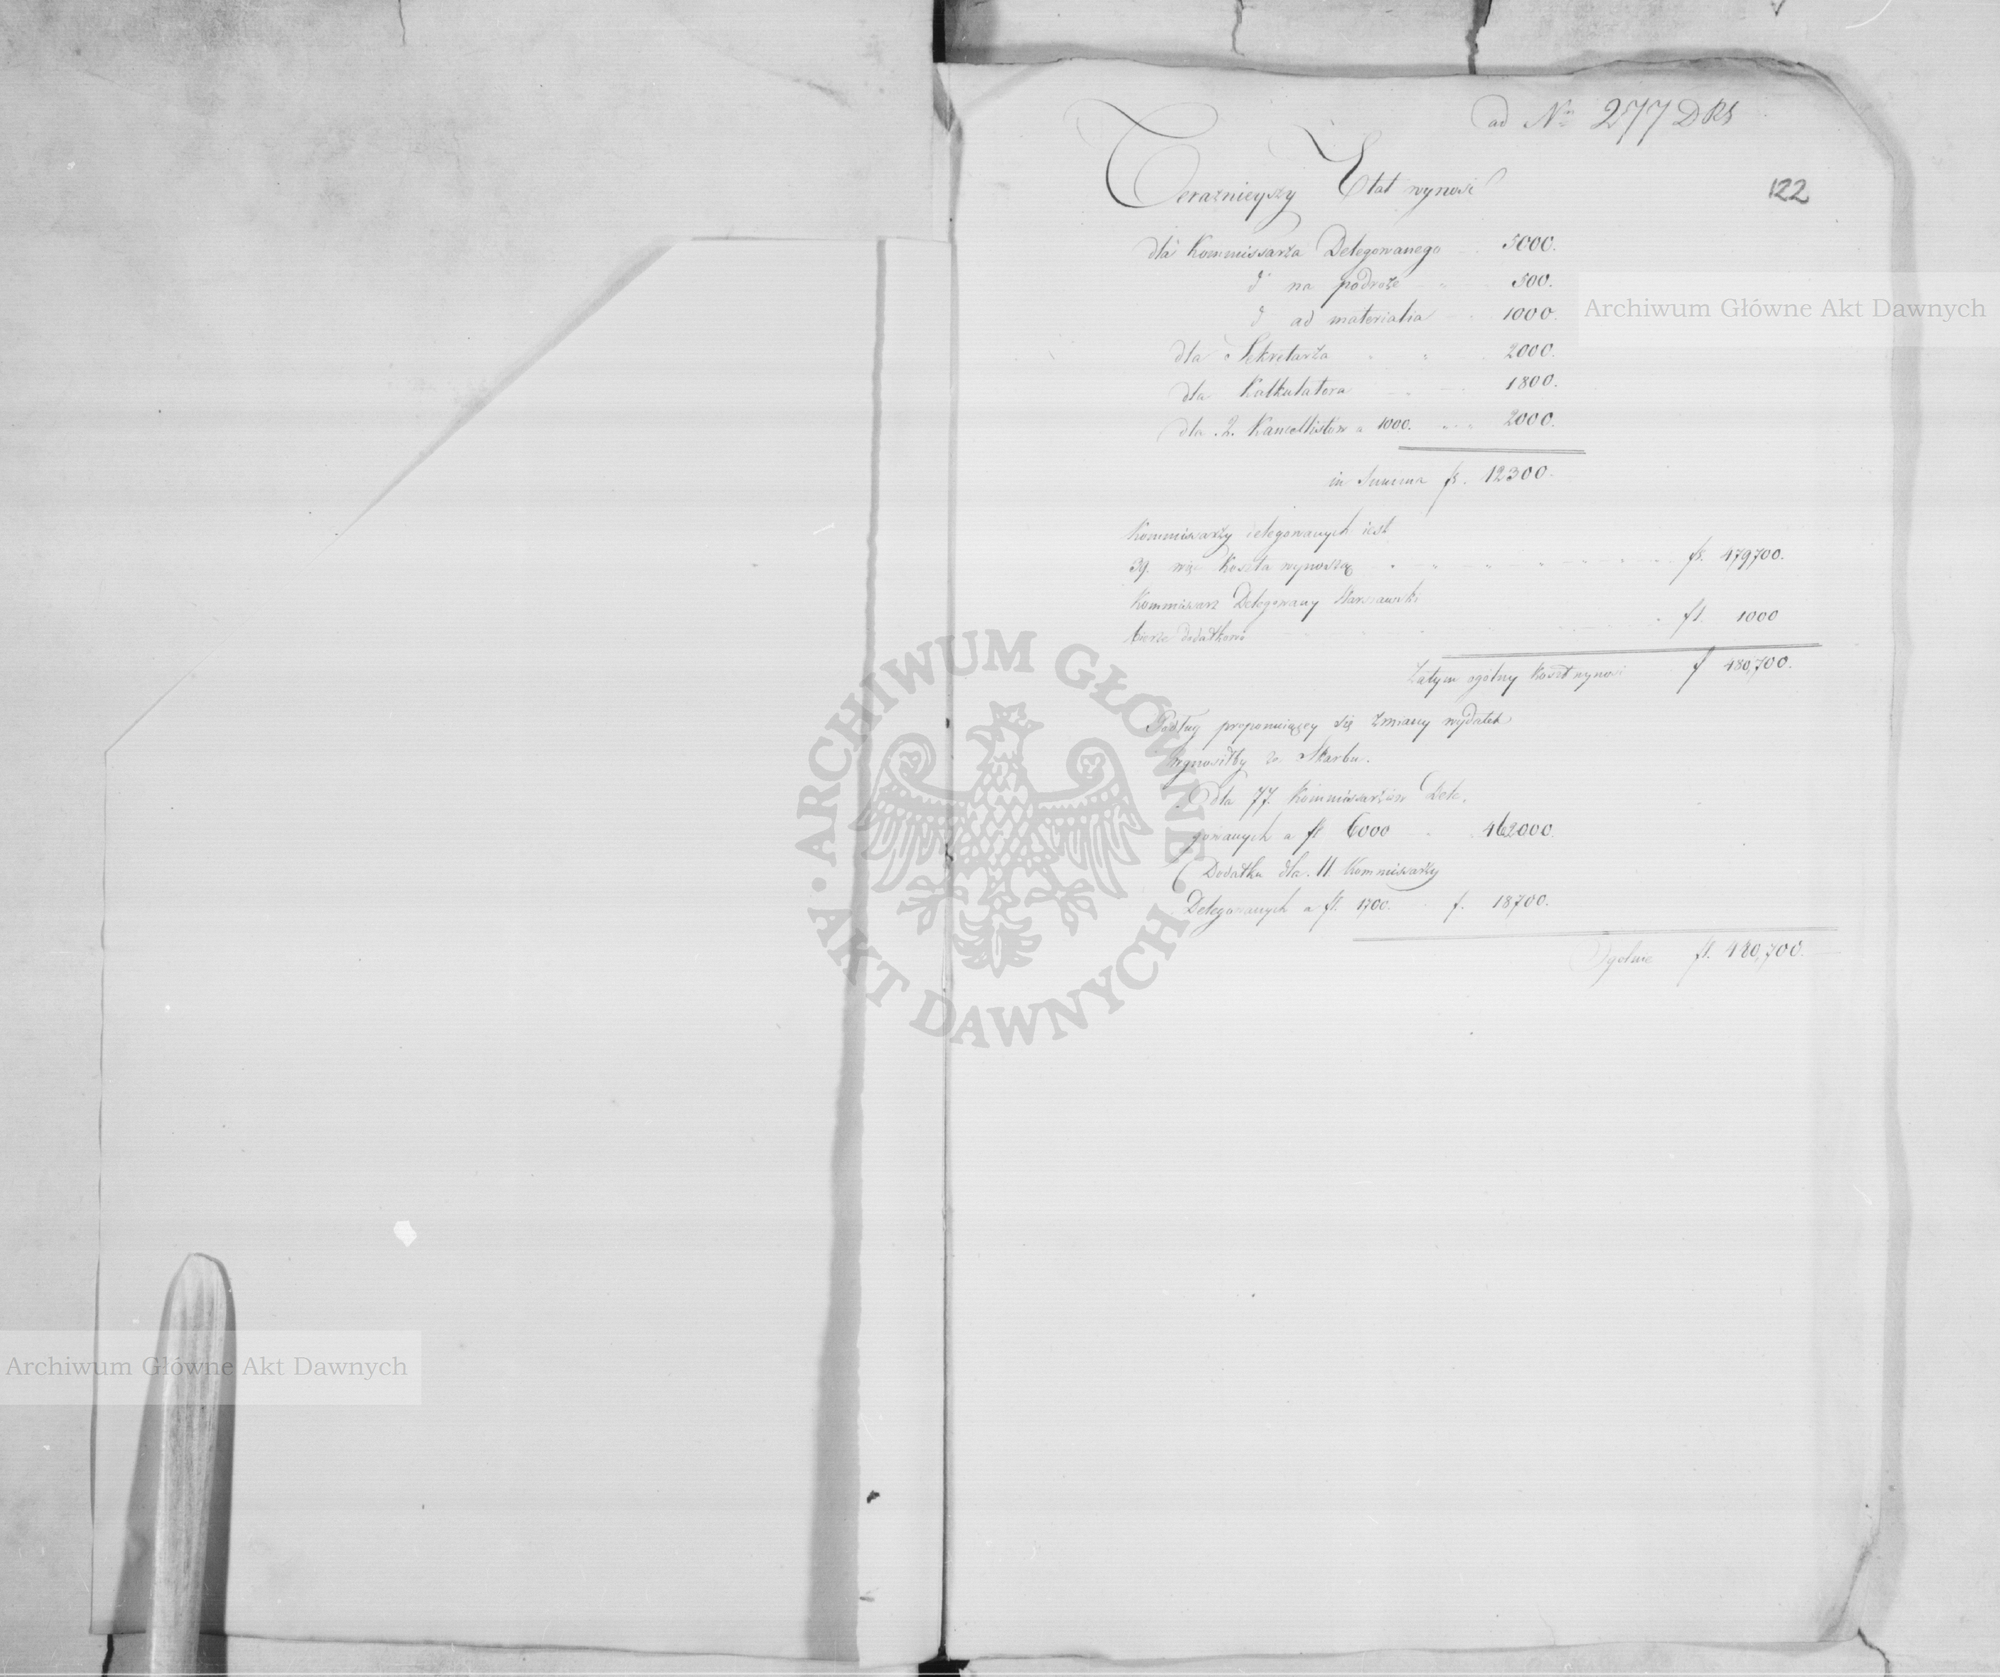 ad No 277 DRS
122
Teraznieyszy Etat wynosi
dla Kommissarza Delegowanego 5000.
d na podroże 500.
d ad materialia 1000.
dla Sekretarza 2000.
dla Kalkulatora 1800.
dla 2. Kancellistów a 1000. 2000.
in Summa fl. 12300.
Kommissarzy delegowanych iest
39. więc koszta wynoszą fl. 479700.
Kommissarz Delegowany Warszawski
bierze dodatkowo fl. 1000
Zatym ogólny koszt wynosi f 480,700.
Podług proponuiącey się zmiany wydatek
wynosiłby ze Skarbu.
dla 77. Kommissarzów Dele,
gowanych a fl 6000 462000.
Dodatku dla 11 Kommissarzy
Delegowanych a fl. 1700. f. 18,700.
Ogólnie fl. 480,700.
Archiwum Główne Akt Dawnych
ARCHIWUM GŁÓWNE AKT DAWNYCH
Archiwum Główne Akt Dawnych